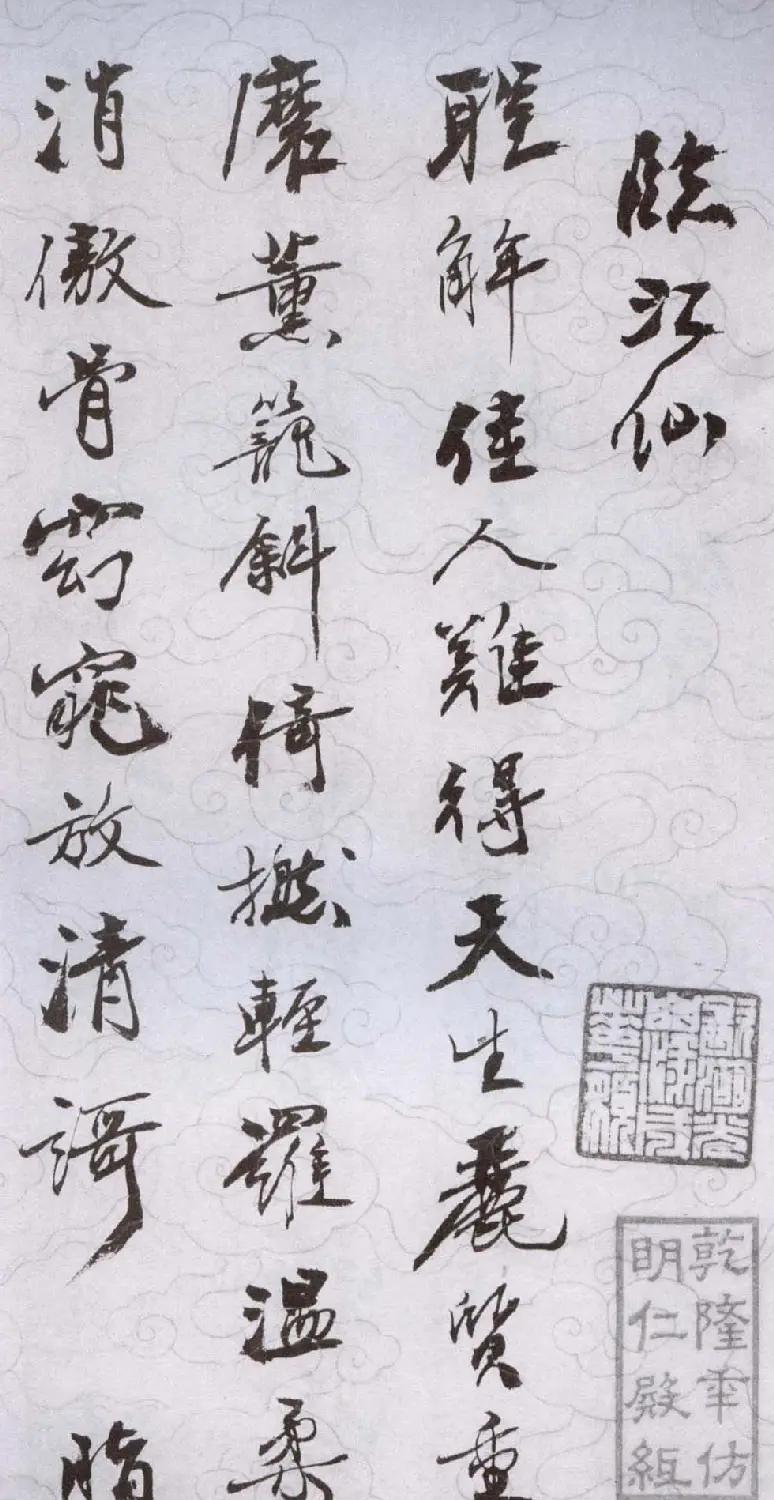 臨江仙
解佳人難得天生麗質重
磨薰籠斜倚撚輕羅溫柔
消傲骨窈窕放清謌 脂
乾隆年仿
明仁殿紙